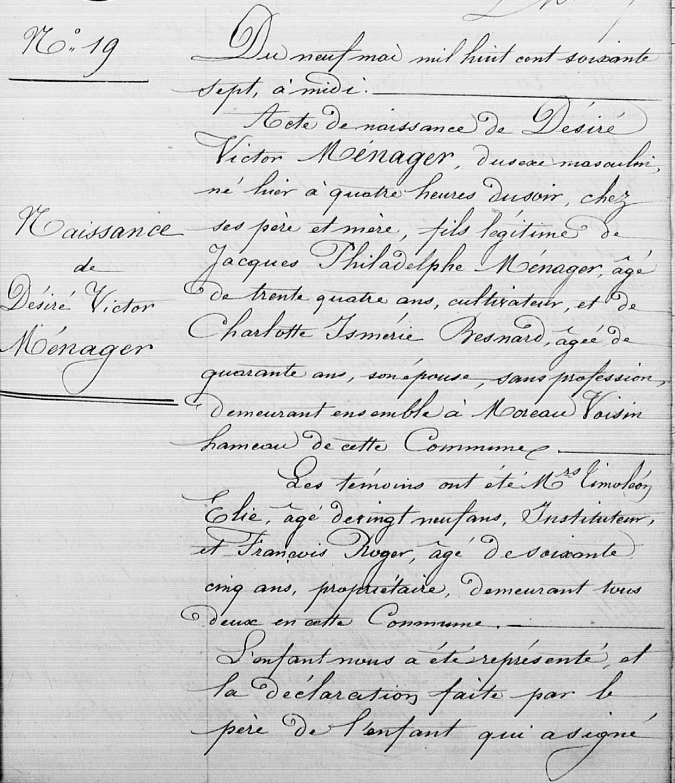 N.° 19
Naissance
de
Désiré Victor
Ménager
Du neuf mai mil huit cent soixante
sept, à midi.
Acte de naissance de Désiré
Victor Ménager, du sexe masculin,
né hier à quatre heures du soir, chez
ses père et mère, fils légitime de
Jacques Philadelphe Ménager, âgé
de trente quatre ans, cultivateur, et de
Charlotte Ismérie Besnard, âgée de
quarante ans, son épouse, sans profession,
demeurant ensemble à Moreau Voisin
hameau de cette Commune
Les témoins ont été Mrs Timoléon
Elie, âgé de vingt neuf ans, Instituteur,
et François Roger, âgé de soixante
cinq ans, propriétaire, demeurant tous
deux en cette Commune.
L'enfant nous a été représenté, et
la déclaration faite par le
père de l'enfant qui a signé